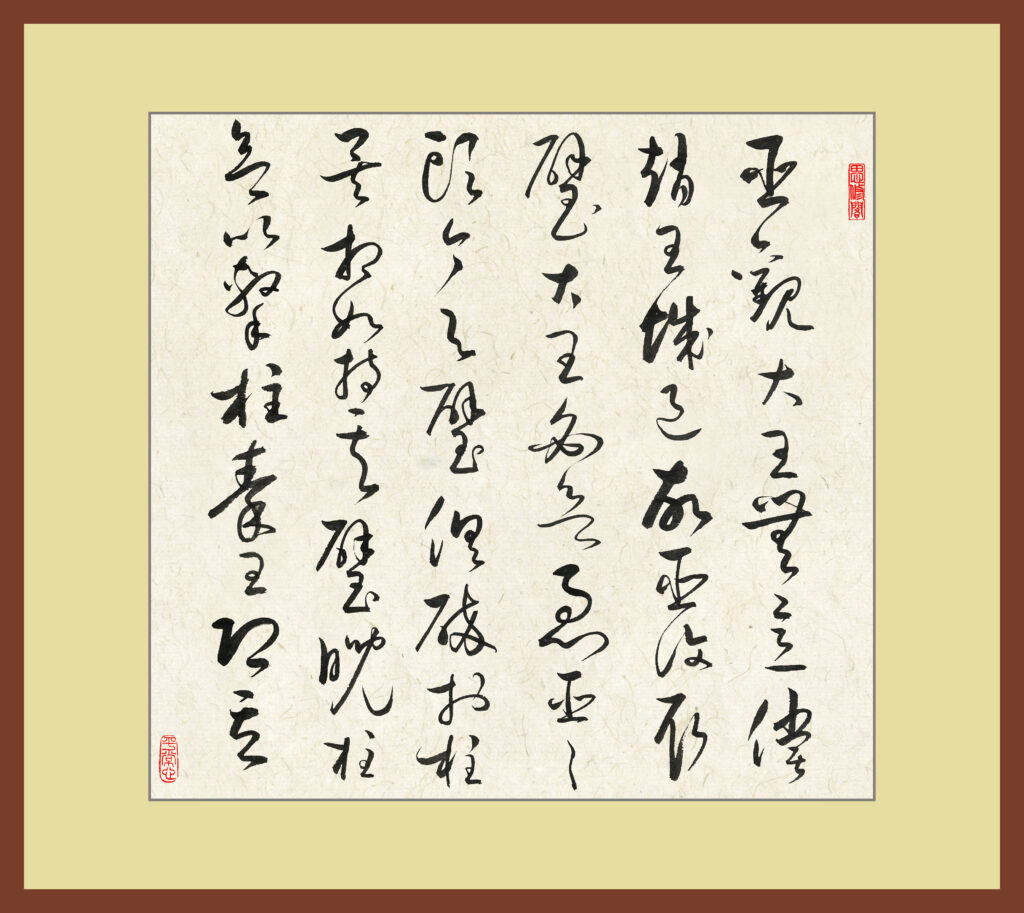 思修閣
臣觀大王無意償
趙王城邑故臣復取
璧大王必欲急臣〻
頭今與璧俱碎於柱
矣相如持其璧睨柱
欲以擊柱秦王恐其
平常心